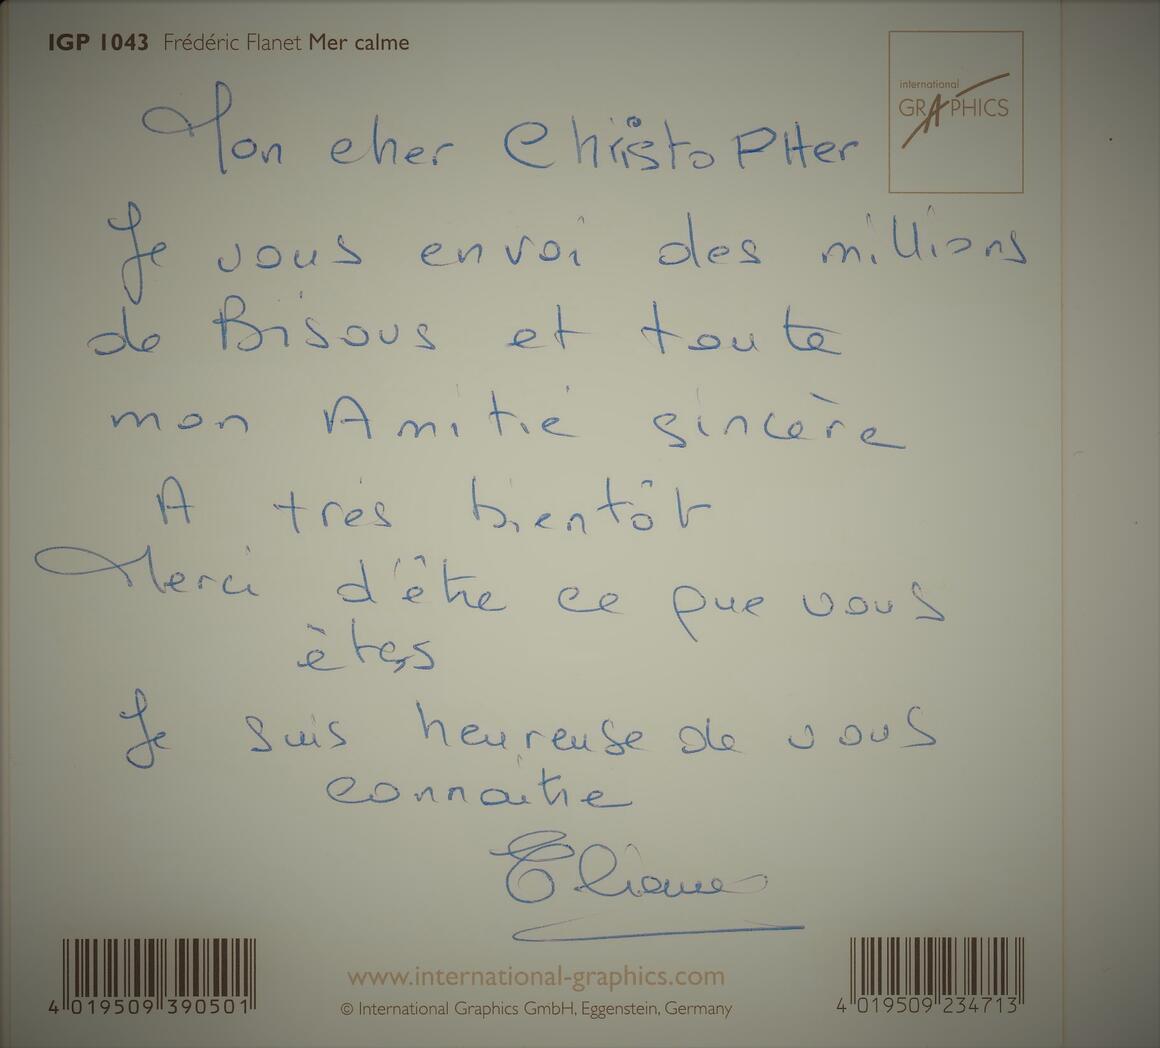 IGP 1043 Frédéric Flanet Mer calme
international
GRAPHICS
Mon cher ChristoPHer
Je vous envoi des millions
de Bisous et toute
mon Amitié sincère
A très bientôt
Merci d'être ce que vous
êtes
Je suis heureuse de vous
connaitre
Eliane
4 019509 390501
www.international-graphics.com
© International Graphics GmbH, Eggenstein, Germany
4 019509 234713